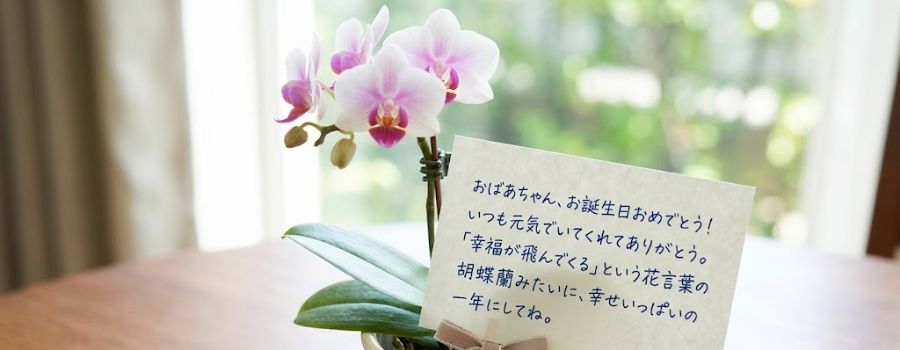 おばあちゃん、お誕生日おめでとう！
いつも元気でいてくれてありがとう。
「幸福が飛んでくる」という花言葉の
胡蝶蘭みたいに、幸せいっぱいの
一年にしてね。